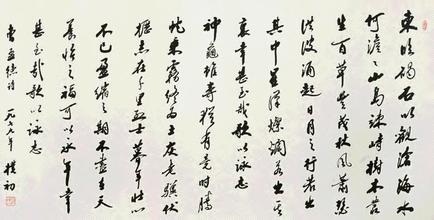 東臨碣石以觀滄海水
何澹々山島竦峙樹木叢
生百草豐茂秋風蕭瑟
洪波涌起日月之行若出
其中星漢燦爛若出其
裏幸甚至哉歌以詠志
神龜雖壽猶有竟時騰
蛇乘霧終為土灰老驥伏
櫪志在千里烈士暮年壯心
不已盈縮之期不盡在天
養怡之福可以永年幸
甚至哉歌以詠志
曹孟德詩 一九七九年 樸初